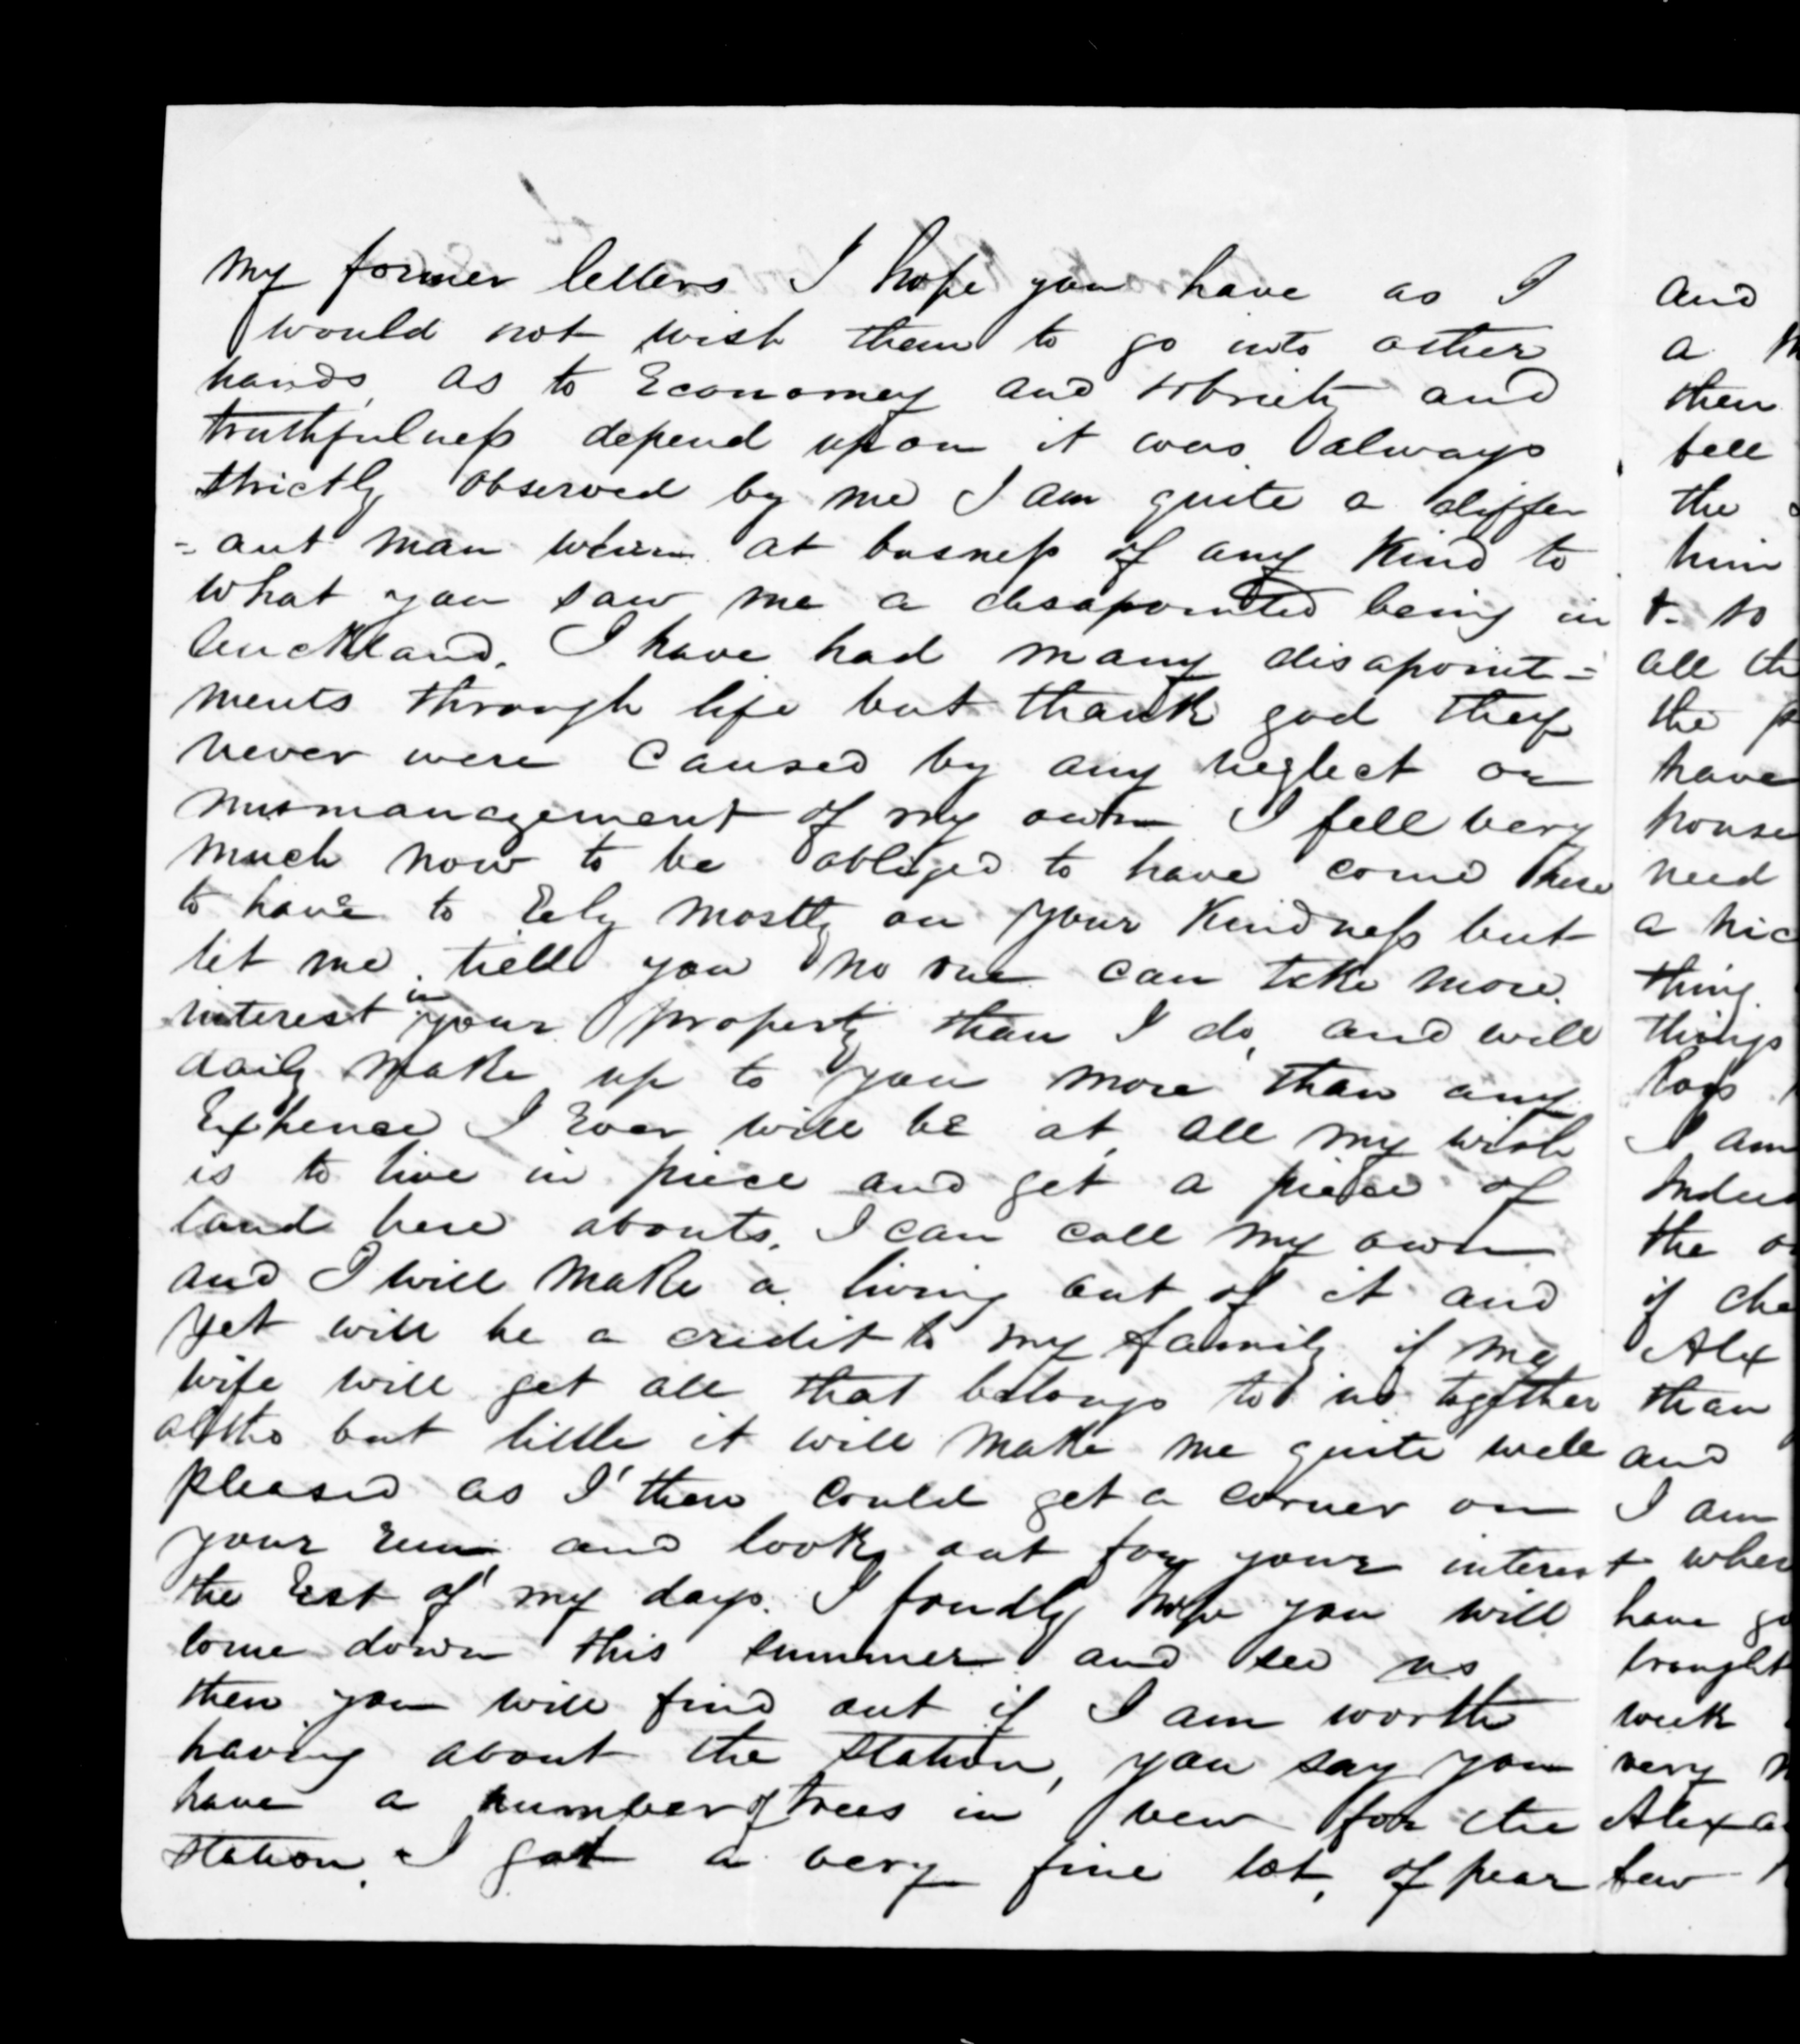 my former letters I hope you have as I
would not wish them to go into other
hands, as to Economey and sobriety and
truthfulness depend upon it was always
strictly observed by me I am quite a differ
=ant man when at busness of any Kind to
what you saw me a disapointed being in
Auckland. I have had many disapoint=
ments through life but thank god they
never were caused by any neglect or
mismanagement of my own I fell very
much now to be obliged to have come here
to have to Rely mostly on your Kindness but
let me tell you no one can take more
interest in your property than I do, and will
daily make up to you more than any
Exphence I Ever will be at, all my wish
is to live in piece and get a piece of
land here abouts. I can call my own
and I will make a living out of it and
yet will be a credit to my family if my
wife will get all that belongs to us together
altho but little it will make me quite well
pleased as I then could get a corner on
your Run and look out for your interest
the Rest of my days. I fondly hope you will
come down this summer and see us
then you will find out if I am worth
having about the station, you say you
have a number of trees in vew for the
station. I got a very fine lot, of pear
and
a
then
fell
the
him
& so
all
the
have
house
need
a
thing
things
Rogs
I am
the
if
Alex
than
and
I am
when
have
brought
week
very
few